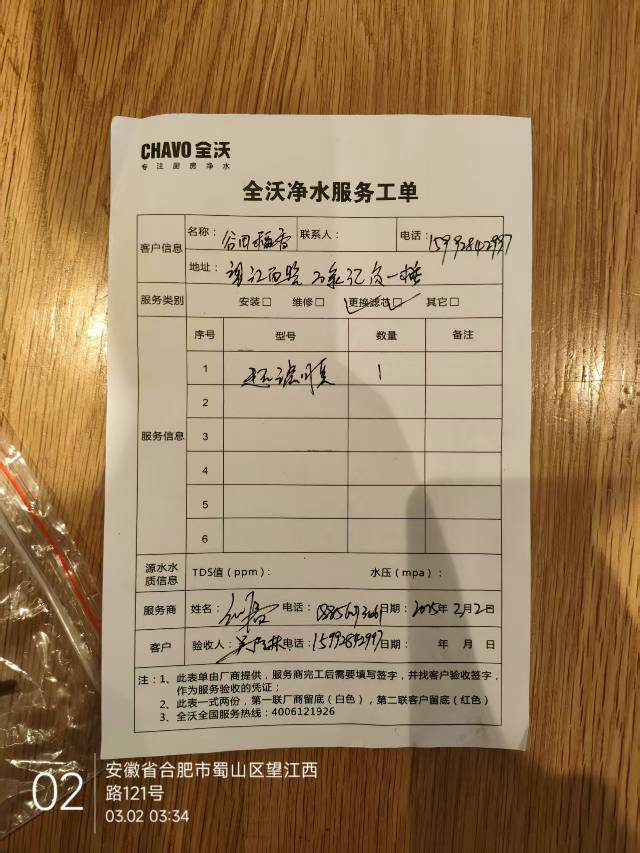 CHAVO 全沃
专注厨房净水
全沃净水服务工单
客户信息 名称：谷田稻香 联系人： 电话：15992842997
地址：望江西路 万象汇 一楼
服务类别 安装□ 维修□ 更换滤芯□ 其它□
服务信息 序号 型号 数量 备注
1 1
2
3
4
5
6
源水水质信息 TDS值（ppm）： 水压（mpa）：
服务商 姓名： 电话： 日期：2025年3月2日
客户 验收人： 电话：15992842997 日期： 年 月 日
注：1、此表单由厂商提供，服务商完工后需要填写签字，并找客户验收签字，
作为服务验收的凭证；
2、此表一式两份，第一联厂商留底（白色），第二联客户留底（红色）
3、全沃全国服务热线：4006121926
02
安徽省合肥市蜀山区望江西
路121号
03.02 03:34